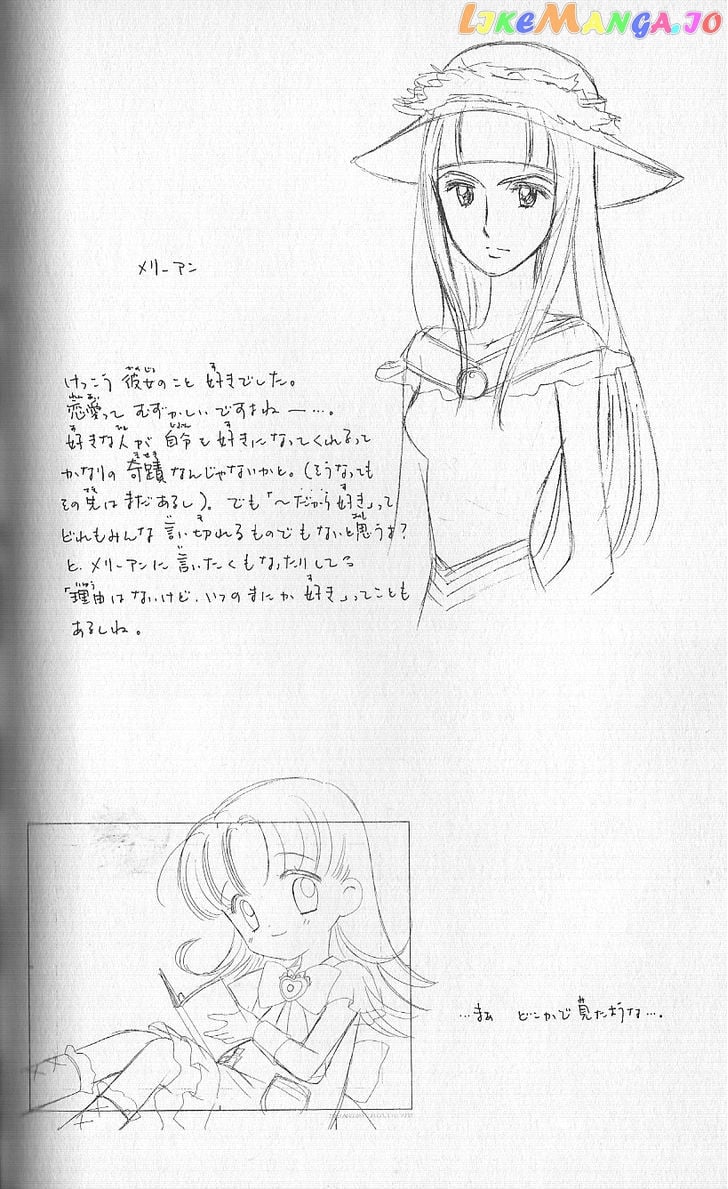 LIKEMANGA.IO
メリーアン
けっこう 彼女のこと 好きでした。
恋愛って むずかしいですよねー…。
好きな人が 自分を 好きになってくれるって
かなりの 奇蹟 なんじゃないかと。(そうなっても
その先はまだあるし)。でも「〜だから好き」って
どれもみんな 言い切れるものでもないと思うよ?
と、メリーアンに 言いたくもなったりして。
「理由はないけど、いつのまにか 好き」ってことも
あるしね。
…まぁ どこかで 見たような…。